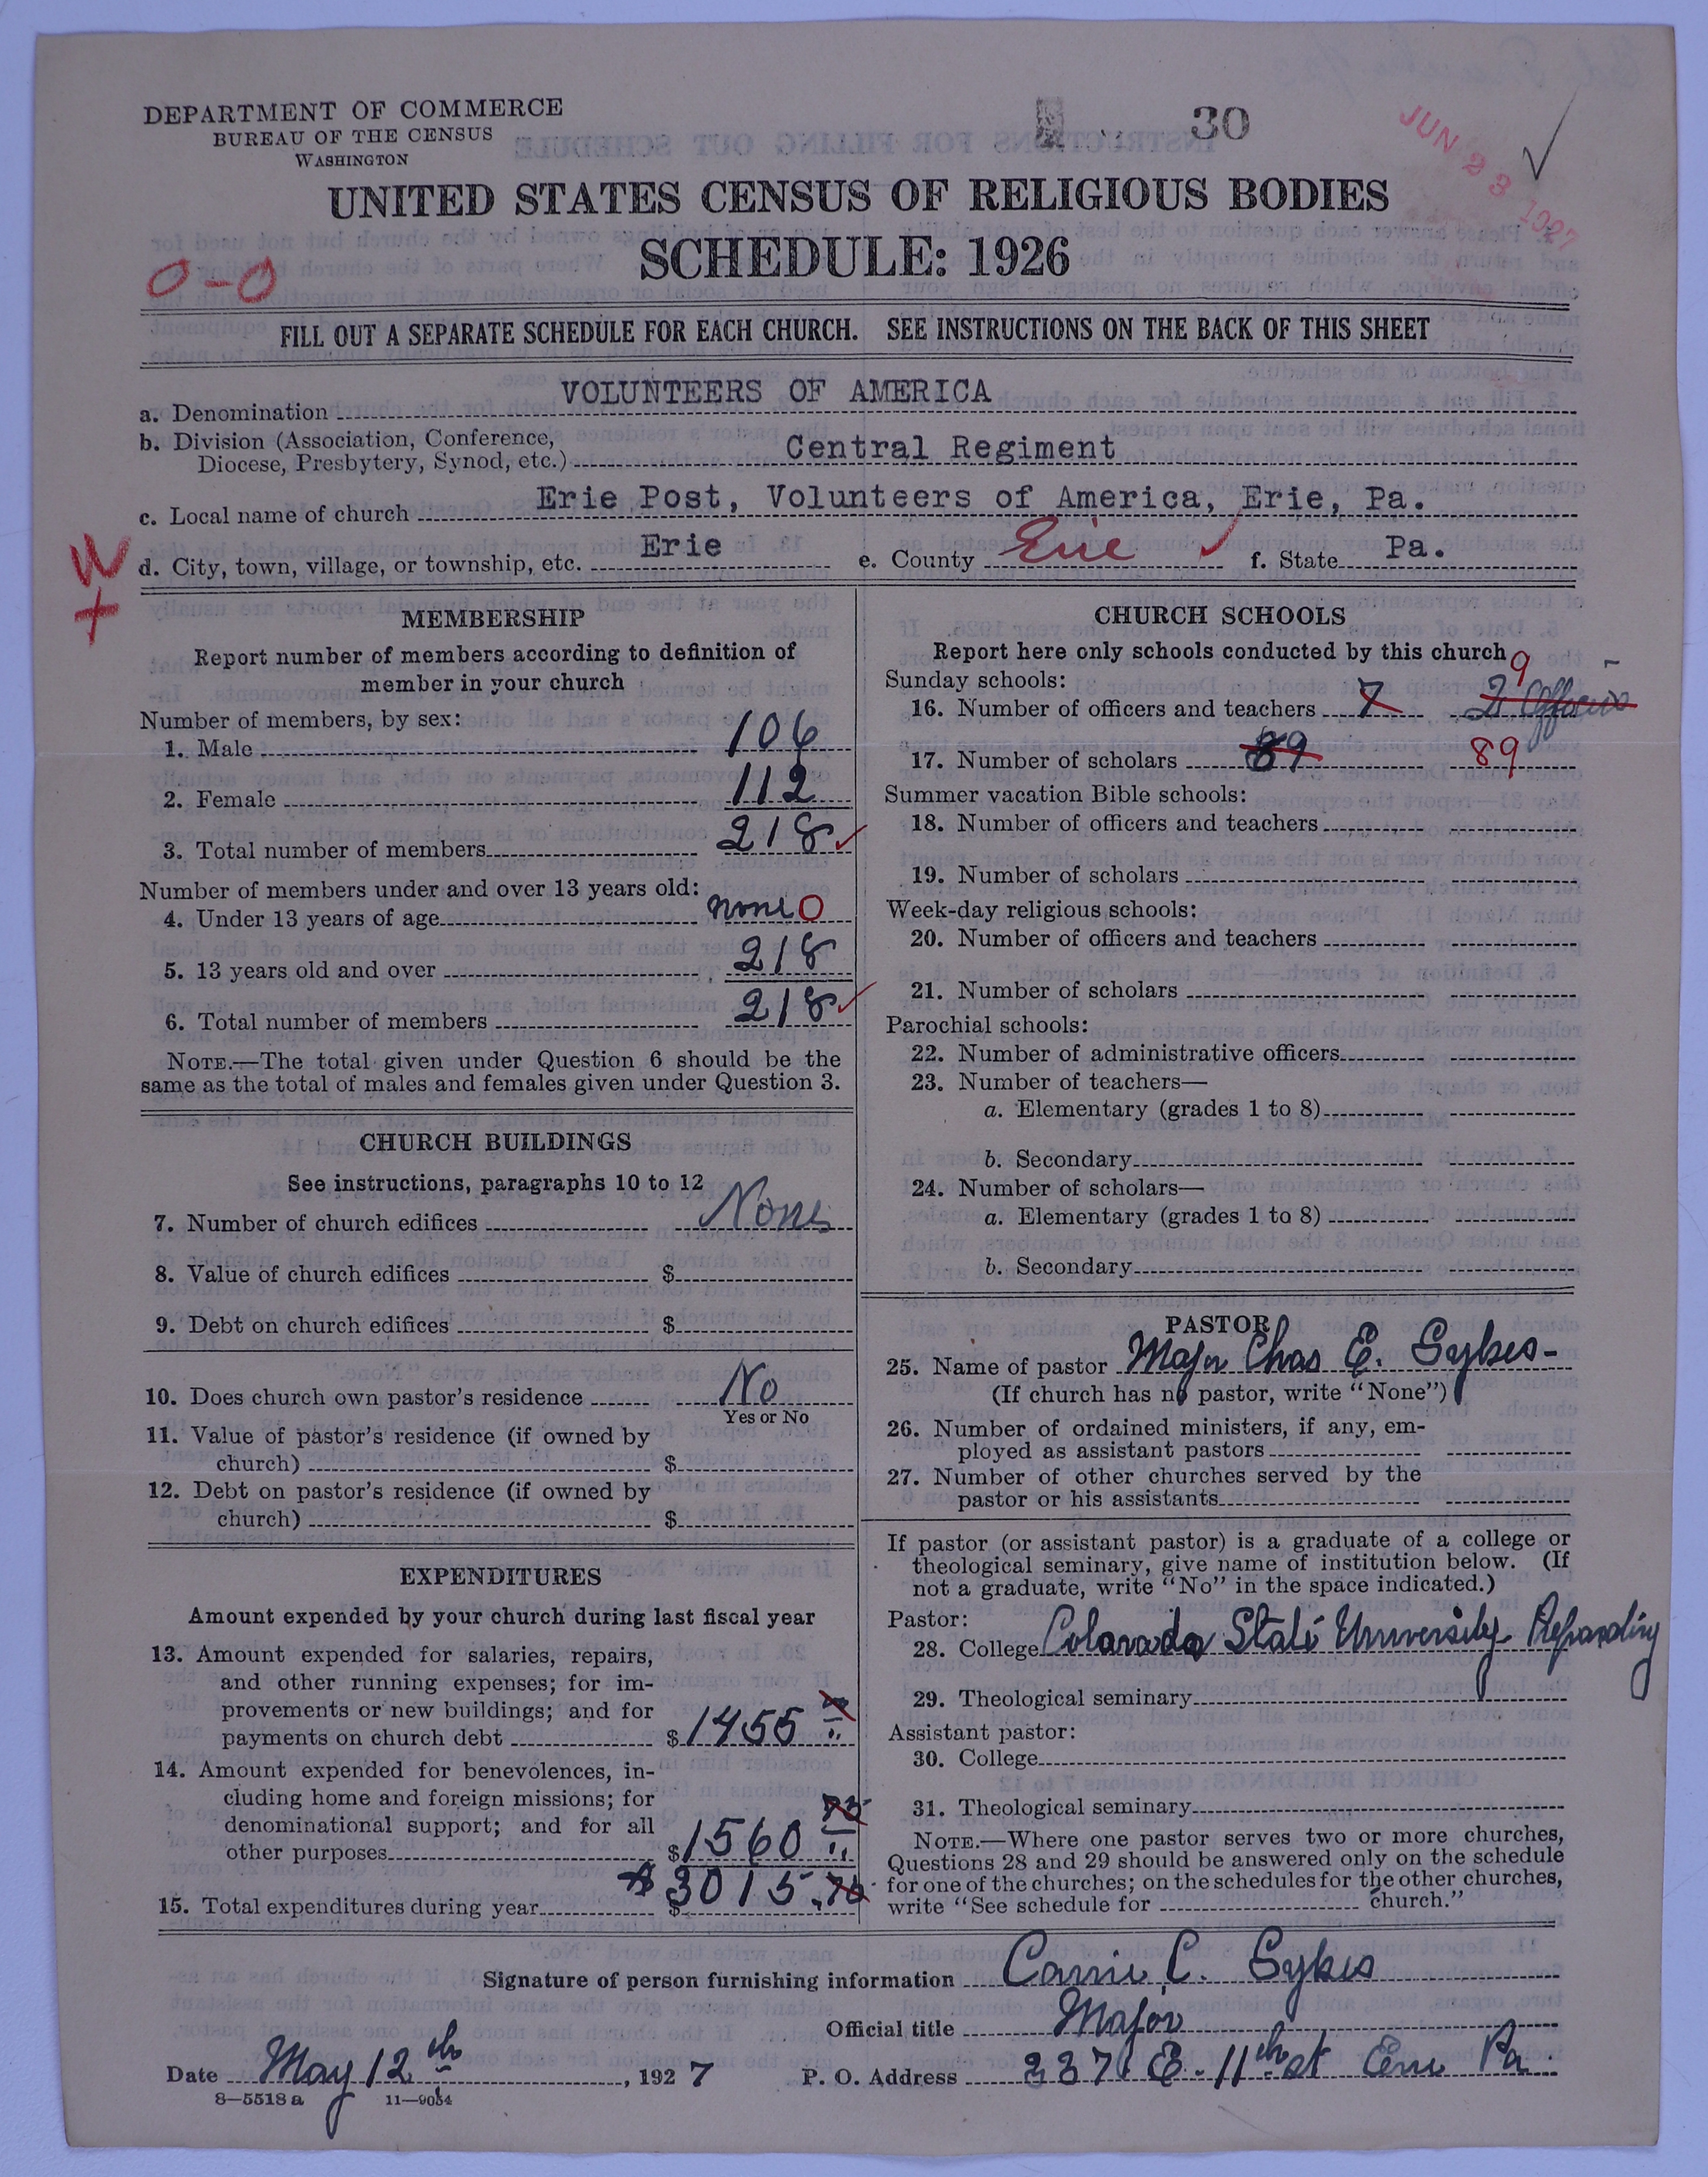 DEPARTMENT OF COMMERCE
BUREAU OF THE CENSUS
WASHINGTON
30
JUN 23 1927
UNITED STATES CENSUS OF RELIGIOUS BODIES
SCHEDULE: 1926
0-0
FILL OUT A SEPARATE SCHEDULE FOR EACH CHURCH. SEE INSTRUCTIONS ON THE BACK OF THIS SHEET
a. Denomination VOLUNTEERS OF AMERICA
b. Division (Association, Conference, Diocese, Presbytery, Synod, etc.) Central Regiment
c. Local name of church Erie Post, Volunteers of America, Erie, Pa.
W
+
d. City, town, village, or township, etc. Erie e. County Erie f. State Pa.
MEMBERSHIP
Report number of members according to definition of
member in your church
Number of members, by sex:
1. Male 106
2. Female 112
3. Total number of members 218
Number of members under and over 13 years old:
4. Under 13 years of age none 0
5. 13 years old and over 218
6. Total number of members 218
NOTE.—The total given under Question 6 should be the
same as the total of males and females given under Question 3.
CHURCH BUILDINGS
See instructions, paragraphs 10 to 12
7. Number of church edifices None
8. Value of church edifices $
9. Debt on church edifices $
10. Does church own pastor's residence No
Yes or No
11. Value of pastor's residence (if owned by
church) $
12. Debt on pastor's residence (if owned by
church) $
EXPENDITURES
Amount expended by your church during last fiscal year
13. Amount expended for salaries, repairs,
and other running expenses; for im-
provements or new buildings; and for
payments on church debt $1455
14. Amount expended for benevolences, in-
cluding home and foreign missions; for
denominational support; and for all
other purposes $1560 75
15. Total expenditures during year $ $3015.75
CHURCH SCHOOLS
Report here only schools conducted by this church
Sunday schools:
16. Number of officers and teachers 7 2 Officers 9
17. Number of scholars 89 89
Summer vacation Bible schools:
18. Number of officers and teachers
19. Number of scholars
Week-day religious schools:
20. Number of officers and teachers
21. Number of scholars
Parochial schools:
22. Number of administrative officers
23. Number of teachers—
a. Elementary (grades 1 to 8)
b. Secondary
24. Number of scholars—
a. Elementary (grades 1 to 8)
b. Secondary
PASTOR
25. Name of pastor Major Chas E. Sykes-
(If church has no pastor, write "None")
26. Number of ordained ministers, if any, em-
ployed as assistant pastors
27. Number of other churches served by the
pastor or his assistants
If pastor (or assistant pastor) is a graduate of a college or
theological seminary, give name of institution below. (If
not a graduate, write "No" in the space indicated.)
Pastor:
28. College Colorado State University
29. Theological seminary
Assistant pastor:
30. College
31. Theological seminary
NOTE.—Where one pastor serves two or more churches,
Questions 28 and 29 should be answered only on the schedule
for one of the churches; on the schedules for the other churches,
write "See schedule for church."
Signature of person furnishing information Carrie C. Sykes
Official title Major
Date May 12th, 1927 P. O. Address 337 E. 11th St Erie Pa.
8—5518 a 11—9054